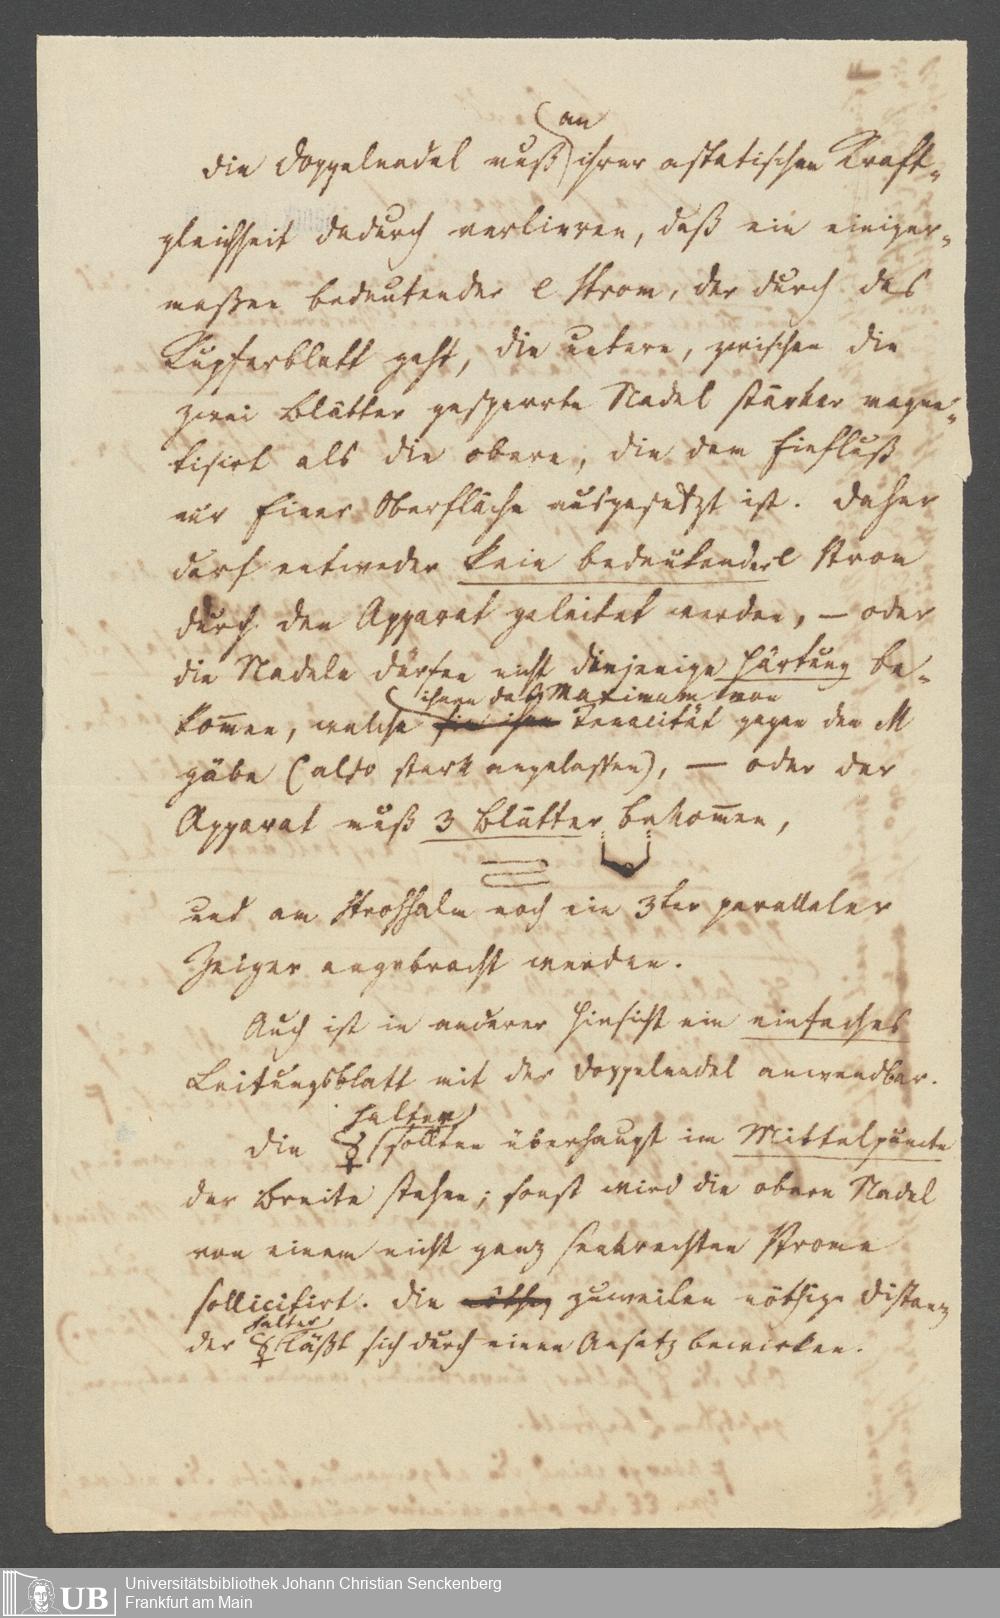 an
Die Doppelnadel muß ihrer astatischen Kraft-
gleichheit dadurch verlieren, daß ein einiger-
maßen bedeutender e Strom, der durch das
Kupferblatt geht, die untere, zwischen die
zwei Blätter gesperrte Nadel stärker magne-
tisirt als die obere, die dem Einfluß
nur Einer Oberfläche ausgesetzt ist. Daher
darf entweder kein bedeutender e Strom
durch den Apparat geleitet werden, – oder
die Nadeln dürfen nicht diejenige Härtung be-
ihnen das Maximum von
kom̄en, welche Tenacität gegen den M
gäbe (also stark angelassen), – oder der
Apparat muß 3 Blätter bekom̄en,
und am Strohhalm noch ein 3ter paralleler
Zeiger angebracht werden.
Auch ist in anderer Hinsicht ein einfaches
Leitungsblatt mit der Doppelnadel anwendbar.
halter
Die ☿ sollten überhaupt im Mittelpuncte
der Breite stehen; sonst wird die obere Nadel
von einem nicht ganz senkrechten Strome
sollicitirt. Die nöthig zuweilen nöthige Distanz
halter
der ☿ läßt sich durch einen Ansatz bewirken.
UB
Universitätsbibliothek Johann Christian Senckenberg
Frankfurt am Main